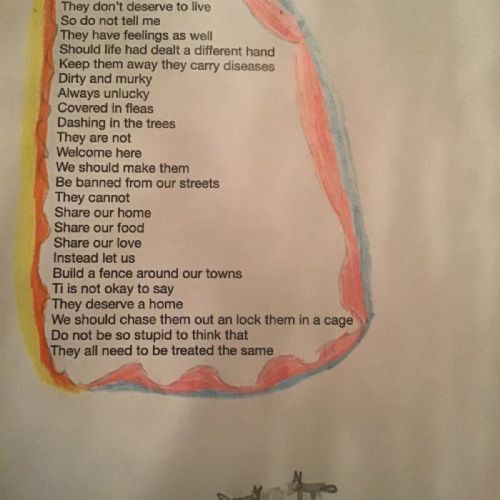 They don't deserve to live
So do not tell me
They have feelings as well
Should life had dealt a different hand
Keep them away they carry diseases
Dirty and murky
Always unlucky
Covered in fleas
Dashing in the trees
They are not
Welcome here
We should make them
Be banned from our streets
They cannot
Share our home
Share our food
Share our love
Instead let us
Build a fence around our towns
Ti is not okay to say
They deserve a home
We should chase them out an lock them in a cage
Do not be so stupid to think that
They all need to be treated the same